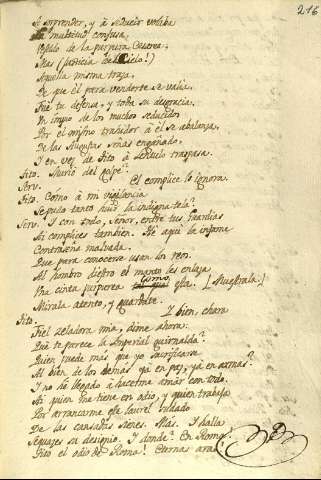 216
A sorprender, y à seducir volaba
La multitud confusa,
Vestido de la purpura Cesarea.
Mas (justicia del Cielo!)
Aquella misma traza,
De que èl para venderte se valia,
Fue tu defensa, y toda su desgracia.
Un impio de los muchos seducidos
Por el mismo traidor à èl se abalanza,
De las Augustas señas engañado,
I en vez de Tito à Lentulo traspasa.
Tito. Murio del golpe?
Serv. El complice lo ignora.
Tito. Cómo à mi vigilancia
Se pudo tanto la indigna tela?
Serv. I con todo, Señor, entre tus Guardias
Ai complices tambien. Hè aqui la infame
Contraseña malvada,
Que para conocerse usan los reos.
Al hombro diestro el manto les enlaza
Una cinta purpurea como esta. [Muestrala.]
Mirala atento, y guardate.
Tito. I bien, chara
Fiel zeladora mia, dime ahora:
Què te parece la Imperial guirnalda?
Quien puede mas que yo sacrificarse
Al bien de los demàs yà en paz, yà en armas?
I no he llegado à hacerme amàr con todo.
Ai quien me tiene en odio, y quien trabaja
Por arrancarme este laurel sudado
De las cansadas sienes. Mas. I halla
Sequazes su designio. I donde? En Roma!
Tito el odio de Roma! Eternas aras